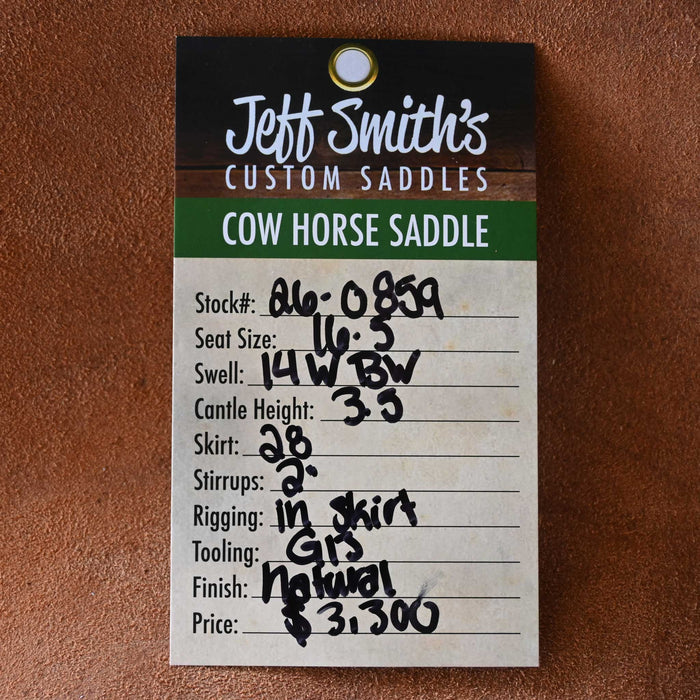 Jeff Smith's
CUSTOM SADDLES
COW HORSE SADDLE
Stock#: 26-0859
Seat Size: 16.5
Swell: 14W BW
Cantle Height: 3.5
Skirt: 28
Stirrups: 2"
Rigging: in skirt
Tooling:
Finish: Natural
Price: $3,300